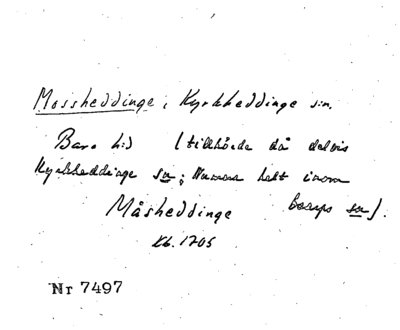 Mossheddinge, Kyrkheddinge sn.
Bara hd (tillhörde då delvis
Kyrkheddinge sn; numera helt inom
Måsheddinge Esarps sn).
kb. 1705
Nr 7497